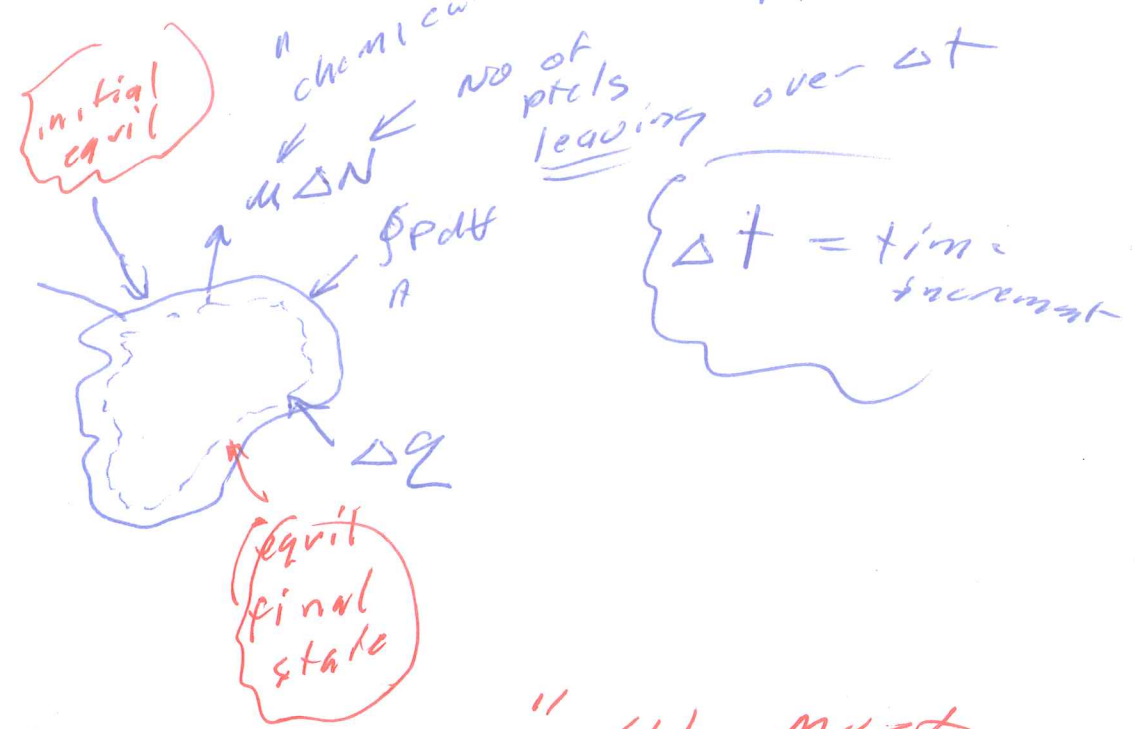 initial
equil
"chemica
No of
ptcls
leaving over Δt
μΔN
∮PdV
A
Δt = time
increment
Δq
equil
final
state
"